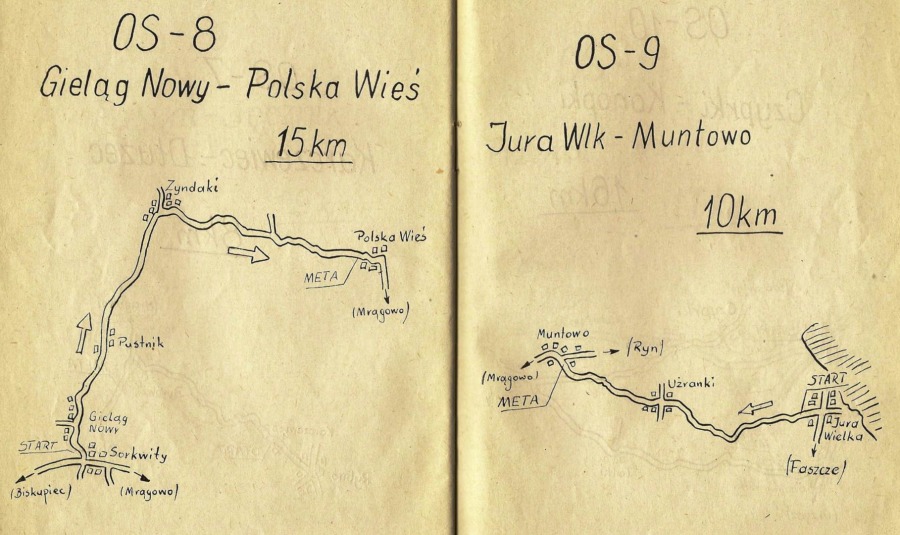 OS-8
Gieląg Nowy - Polska Wieś
15 km
Zyndaki
Polska Wieś
META
(Mrągowo)
Pustnik
Gieląg
NOWY
START
Sorkwity
(Biskupiec)
(Mrągowo)
OS-9
Jura Wlk - Muntowo
10km
Muntowo
(Ryn)
(Mrągowo)
META
Użranki
START
Jura
Wielka
(Faszcze)